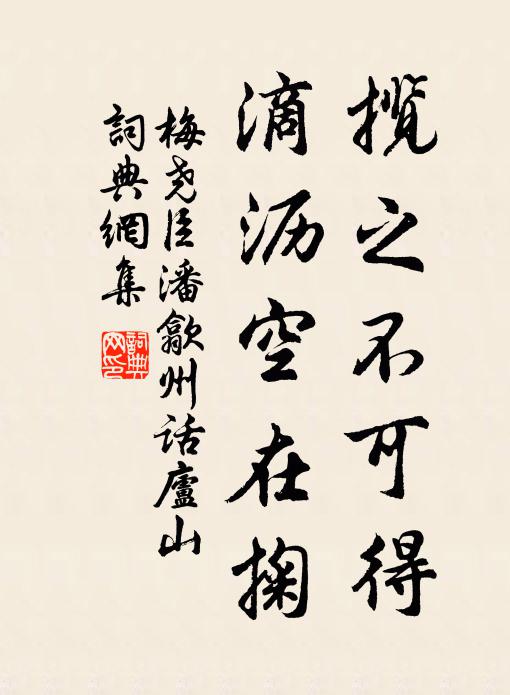 揽之不可得
滴沥空在掬
梅尧臣潘歙州话廬山
詞典網集
詞典网印